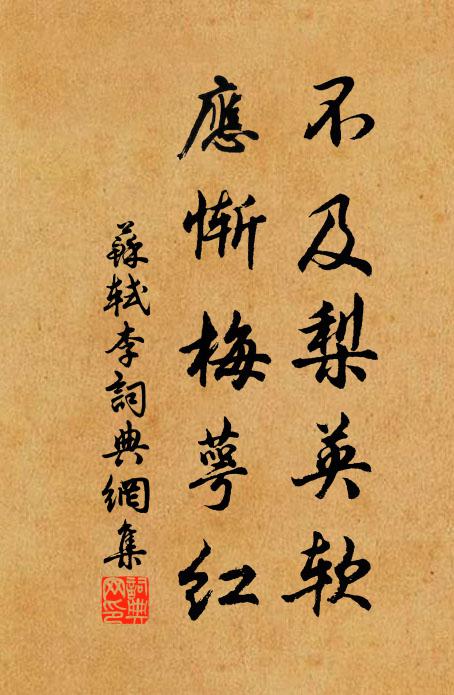 不及梨英軟
應慚梅萼紅
蘇軾李詞典網集
詞典網印